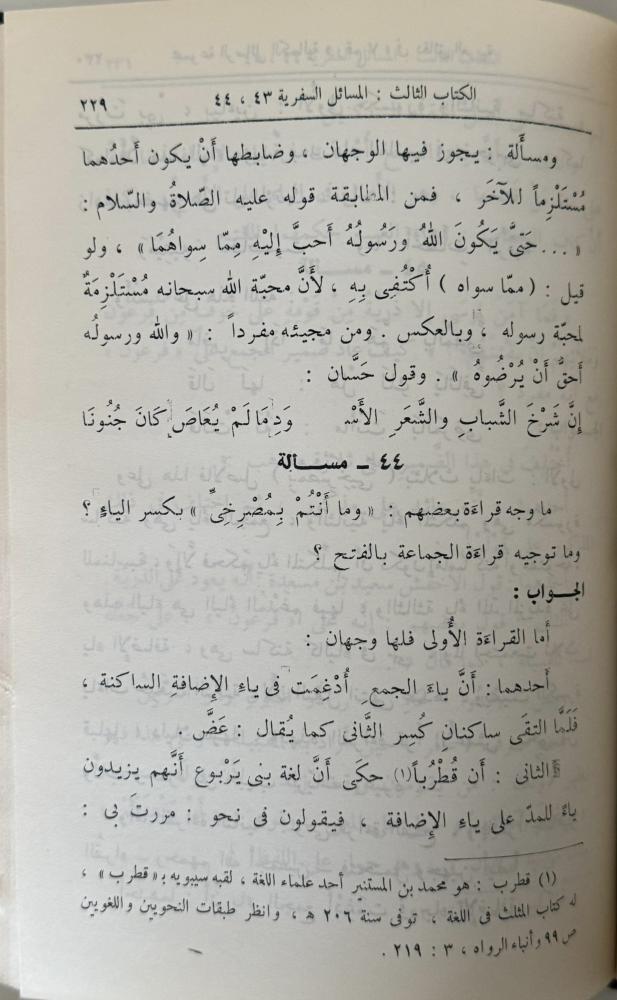 الكتاب الثالث : المسائل السفرية ٤٣ ، ٤٤ ٢٢٩
ومسألة : يجوز فيها الوجهان ، وضابطها أنْ يكون أحدُهما
مُسْتَلْزِماً للآخَر ، فمن المطابقة قوله عليه الصّلاةُ والسّلام :
« ... حَتىَّ يَكُونَ اللهُ ورَسُولُهُ أحبَّ إِلَيْهِ مِمّا سِواهُمَا » ، ولو
قيل : ( ممّا سواه ) أُكْتُفِى بِهِ ، لأَنَّ محبّة الله سبحانه مُسْتَلْزِمَةٌ
لمحبّة رسوله ، وبالعكس . ومن مجيئه مفرداً : « والله ورسولُه
أحقُّ أنْ يُرْضُوهُ » . وقول حَسَّان :
إِنَّ شَرْخَ الشَّبابِ والشَّعَرِ الأَسْـ وَدِ مَا لَمْ يُعَاصَ كَانَ جُنُونَا
٤٤ - مســالة
ما وجه قراءَة بعضهم : « وما أَنْتُمْ بِمُصْرِخِىِّ » بكسر الياءِ ؟
وما توجيه قراءَة الجماعة بالفتح ؟
الجواب :
أما القراءَة الأُولى فلها وجهان :
أحدهما : أنَّ ياءَ الجمع أُدْغِمَت فى ياءِ الإِضافةِ الساكنة ،
فَلَمَّا التقَى ساكنانِ كُسِر الثَّانى كما يُقال : عَضَّ .
الثانى : أن قُطْرُباً(١) حكَى أنَّ لغة بنى يَرْبوع أنَّهم يزيدون
ياءً للمدّ على ياءِ الإِضافة ، فيقولون فى نحو : مررتَ بى :
(١) قطرب : هو محمد بن المستنير أحد علماء اللغة ، لقبه سيبويه بـ « قطرب » ،
له كتاب المثلث فى اللغة ، توفى سنة ٢٠٦ هـ ، وانظر طبقات النحويين واللغويين
ص ٩٩ وأنباء الرواه ، ٣ : ٢١٩ .